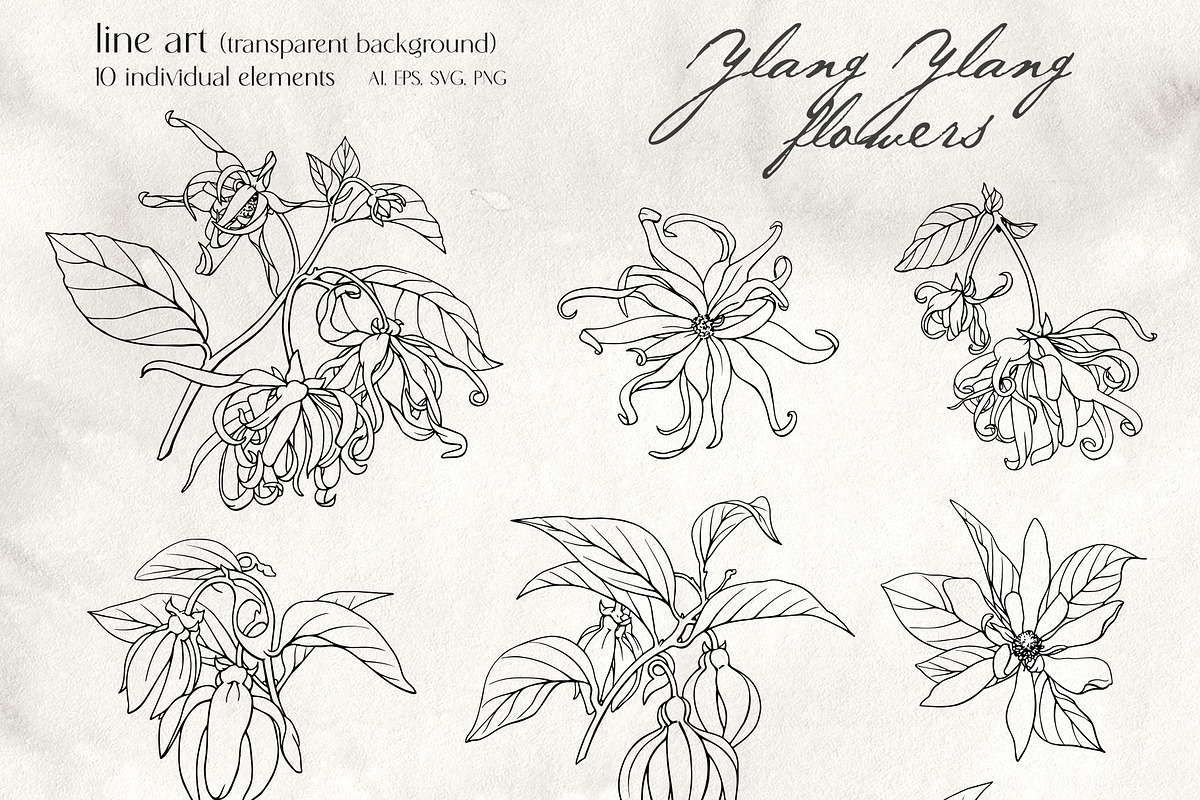 line art (transparent background)
10 individual elements AI, EPS, SVG, PNG
Ylang Ylang
flowers